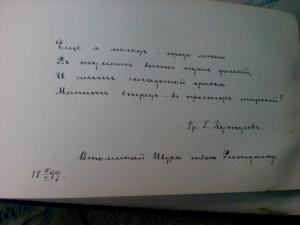 Еще я молодъ – предо мною
Въ туманъ вьется путь далекій,
И жизнь загадочной красою
Манитъ впередъ – въ просторъ широкій!
Гр. Г. Кутузовъ.
Вспоминай Шура твою
18 99.